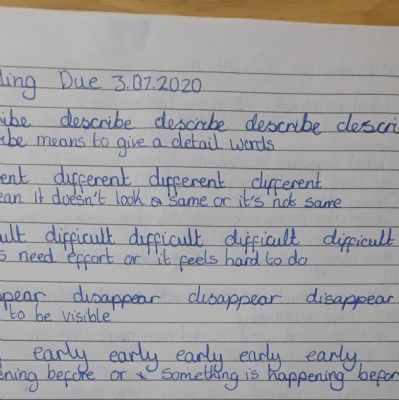 ling Due 3.07.2020
ibe describe describe describe descri
ibe means to give a detail words
ent different different different
ean it doesn't look a same or it's not same
ult difficult difficult difficult difficult
s need effort or it feels hard to do
pear disappear disappear disappear
to be visible
early early early early early
ening before or something is happening befor